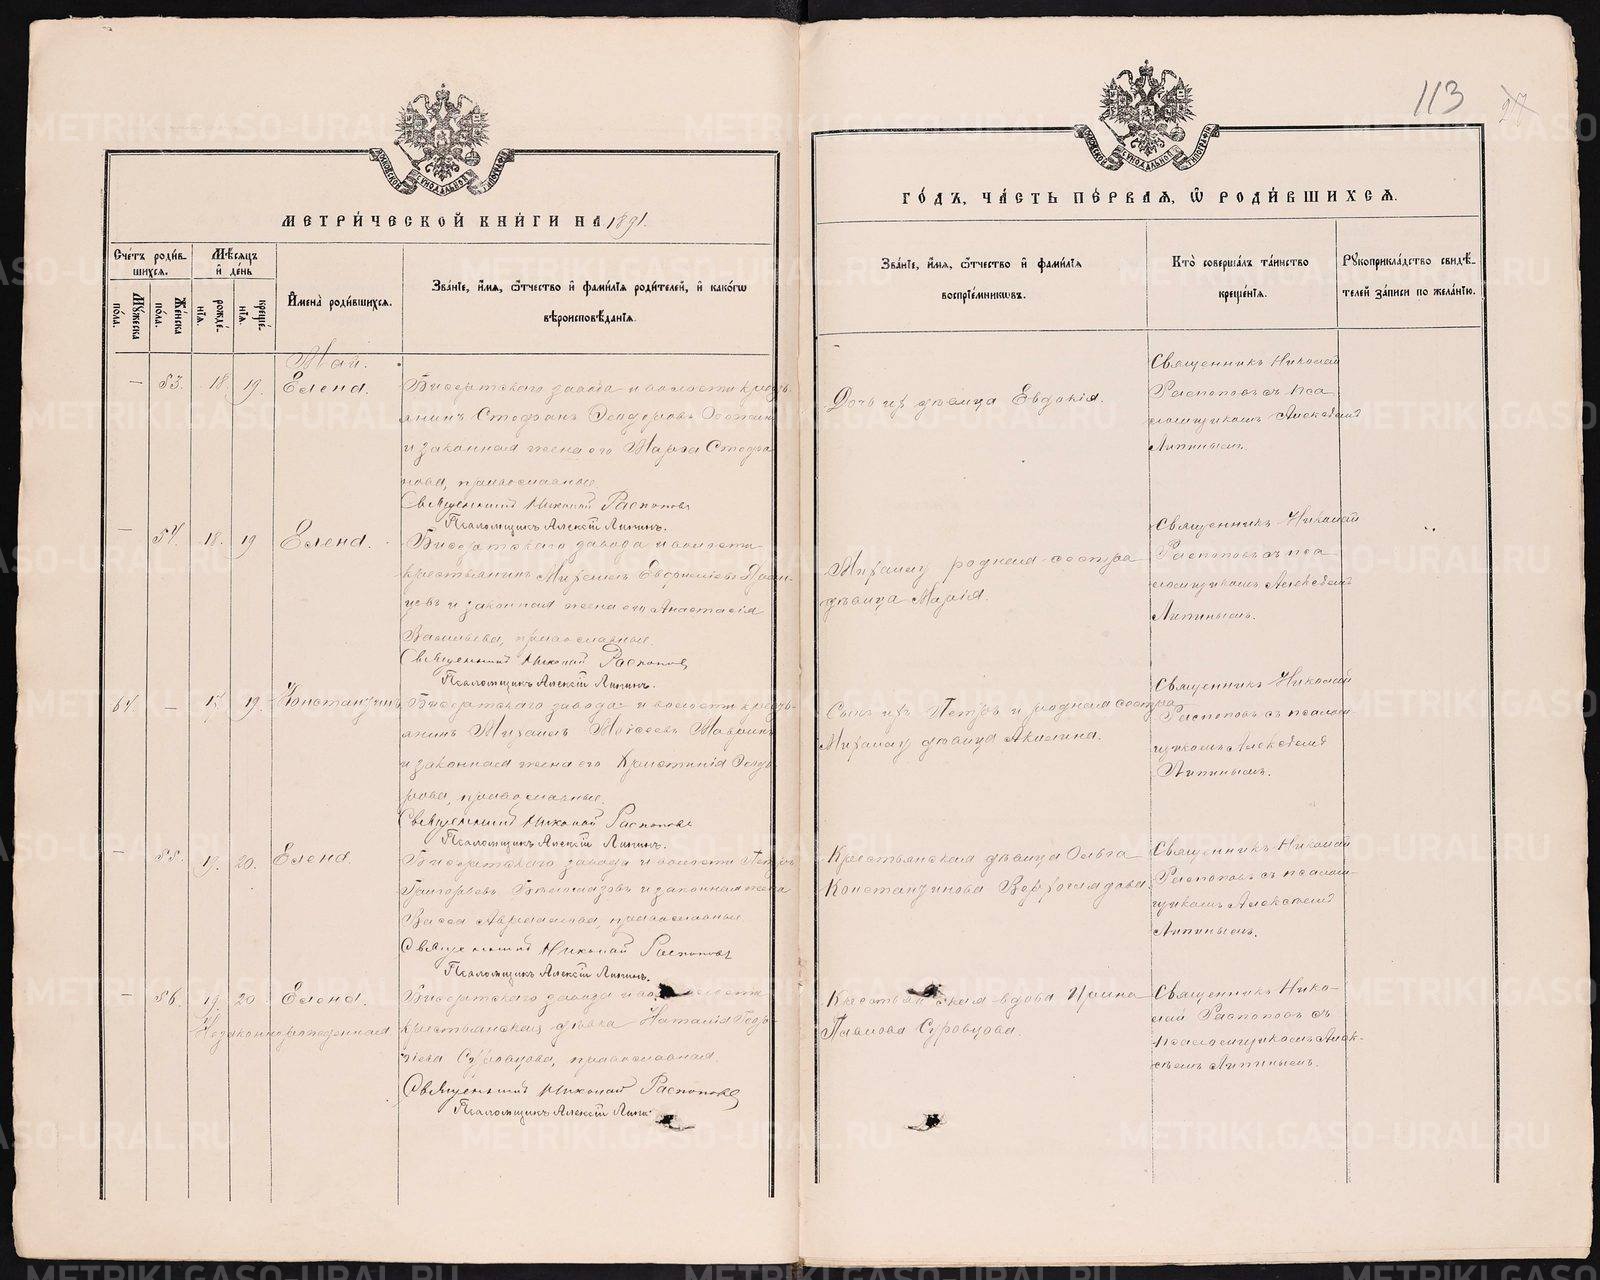 113
27
МЕТРИ́ЧЕСКОЙ КНИ́ГИ НА 1891.
ГО́ДЪ, ЧА́СТЬ ПЕ́РВАЯ, Ѡ РОДИ́ВШИХСѦ.
Сче́тъ роди́в-
шихсѧ.
Мѣ́сѧцъ
и҆ де́нь
Мꙋ́жеска
по́ла.
Же́нска
по́ла.
рожде́-
нїѧ.
креще́-
нїѧ.
И҆мена̀ роди́вшихсѧ.
Зва́нїе, и҆́мѧ, ѻ҆́тчество и҆ фами́лїѧ роди́телей, и҆ како́гѡ
вѣроисповѣ́данїѧ.
Зва́нїе, и҆́мѧ, ѻ҆́тчество и҆ фами́лїѧ
воспрїе́мникѡвъ.
Кто̀ соверша́лъ та́инство
креще́нїѧ.
Рꙋкоприкла́дство свидѣ́-
телей за́писи по жела́нїю.
Май.
— 53. 18. 19. Елена.
Бисертскаго завода и волости кресть-
янинъ Стефанъ Ѳеодоровъ
и законная жена его Марѳа Стефа-
нова, православные.
Священникъ Николай Распоповъ
Псаломщикъ Алексій Липинъ.
Дочь их дѣвица Евдокія.
Священникъ Николай
Распоповъ съ пса-
ломщикомъ Алексѣемъ
Липинымъ.
— 54. 18. 19 Елена.
Бисертскаго завода и волости
крестьянинъ Михаилъ Евфимієвъ
и законная жена его Анастасія
Васильева, православные.
Священникъ Николай Распоповъ
Псаломщикъ Алексій Липинъ.
Михаилу родная сестра
дѣвица Марія.
Священникъ Николай
Распоповъ съ пса-
ломщикомъ Алексѣемъ
Липинымъ.
64. — 17. 19. Константинъ
Бисертскаго завода и волости кресть-
янинъ Михаилъ Моисеевъ
и законная жена его Христинія Ѳеодо-
рова, православные.
Священникъ Николай Распоповъ
Псаломщикъ Алексій Липинъ.
Сынъ ихъ Петръ и родная сестра
Михаилу дѣвица Акилина.
Священникъ Николай
Распоповъ съ псалом-
щикомъ Алексѣемъ
Липинымъ.
— 55. 19. 20. Елена.
Бисертскаго завода и волости Петръ
Григорьевъ Бѣлоглазовъ и законная жена
Васса Авраамова, православные.
Священникъ Николай Распоповъ
Псаломщикъ Алексій Липинъ.
Крестьянская дѣвица Ольга
Константинова Верхоглядова.
Священникъ Николай
Распоповъ съ псалом-
щикомъ Алексѣемъ
Липинымъ.
— 56. 19. 20 Елена.
Незаконнорожденная
Бисертскаго завода и волости
крестьянская дѣвка Наталія Геор-
гіева Суровцова, православная.
Священникъ Николай Распоповъ
Псаломщикъ Алексій Липин
Крестьянская вдова Ирина
Павлова Суровцова.
Священникъ Нико-
лай Распоповъ съ
псаломщикомъ Алек-
сѣемъ Липинымъ.
METRIKI.GASO-URAL.RU